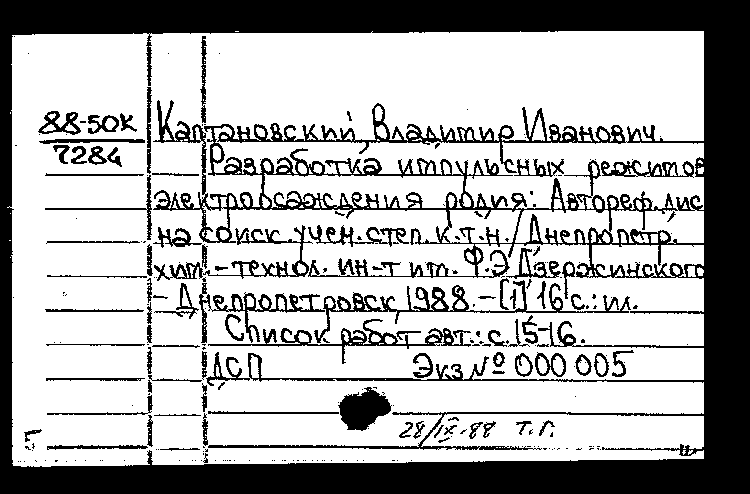 88-50К
7284
Каптановский, Владимир Иванович.
Разработка импульсных режимов
электроосаждения родия: Автореф. дис
на соиск. учен. степ. к.т.н. / Днепропетр.
хим.-технол. ин-т им. Ф.Э Дзержинского
- Днепропетровск, 1988. - [1] 16 с.: ил.
Список работ авт.: с. 15-16.
ДСП Экз № 000 005
28/IX-88 т.г.